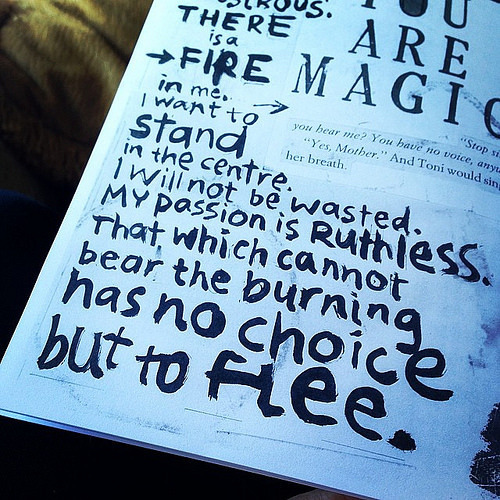 THERE
is a
→FIRE
in me.
I want to →
stand
in the centre.
I will not be wasted.
MY passion is RUthless.
That which cannot
bear the burning
has no choice
but to flee.
YOU
ARE
MAGIC
"Stop si
you hear me? You have no voice, anyw
"Yes, Mother." And Toni would sin
her breath.